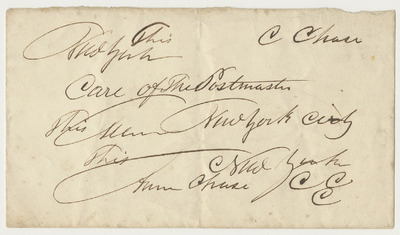 This C Chase
New York
Care of The Postmaster
This New York City
This New York
Ann Chase C C
C